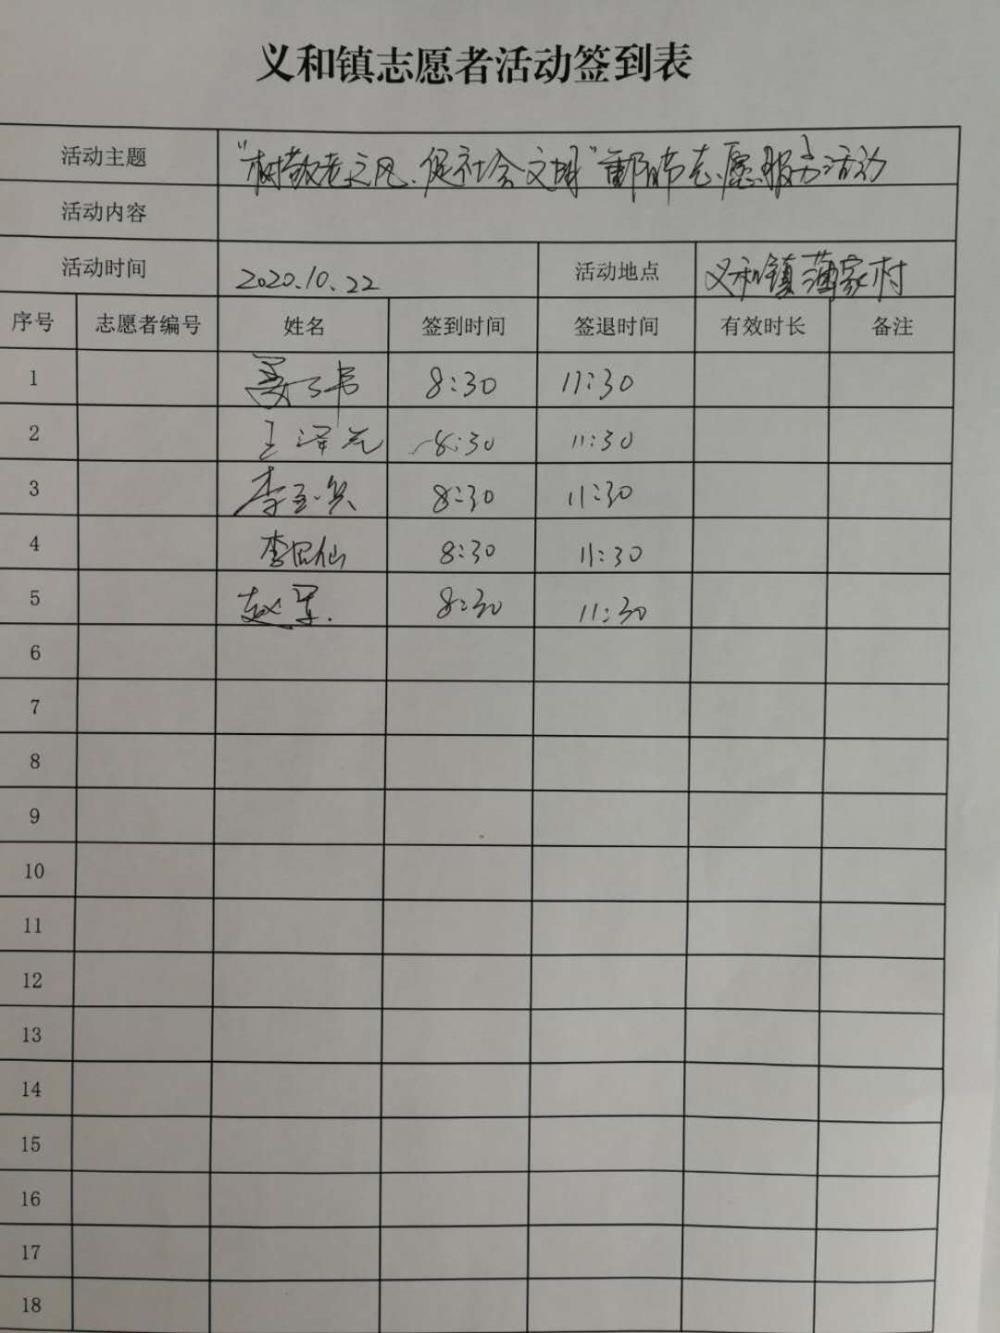 义和镇志愿者活动签到表
活动主题 "树敬老之风、促社会文明"重阳节志愿服务活动
活动内容
活动时间 2020.10.22 活动地点 义和镇蒲家村
序号 志愿者编号 姓名 签到时间 签退时间 有效时长 备注
1 8:30 11:30
2 王泽元 8:30 11:30
3 李玉 8:30 11:30
4 李思仙 8:30 11:30
5 赵军 8:30 11:30
6
7
8
9
10
11
12
13
14
15
16
17
18